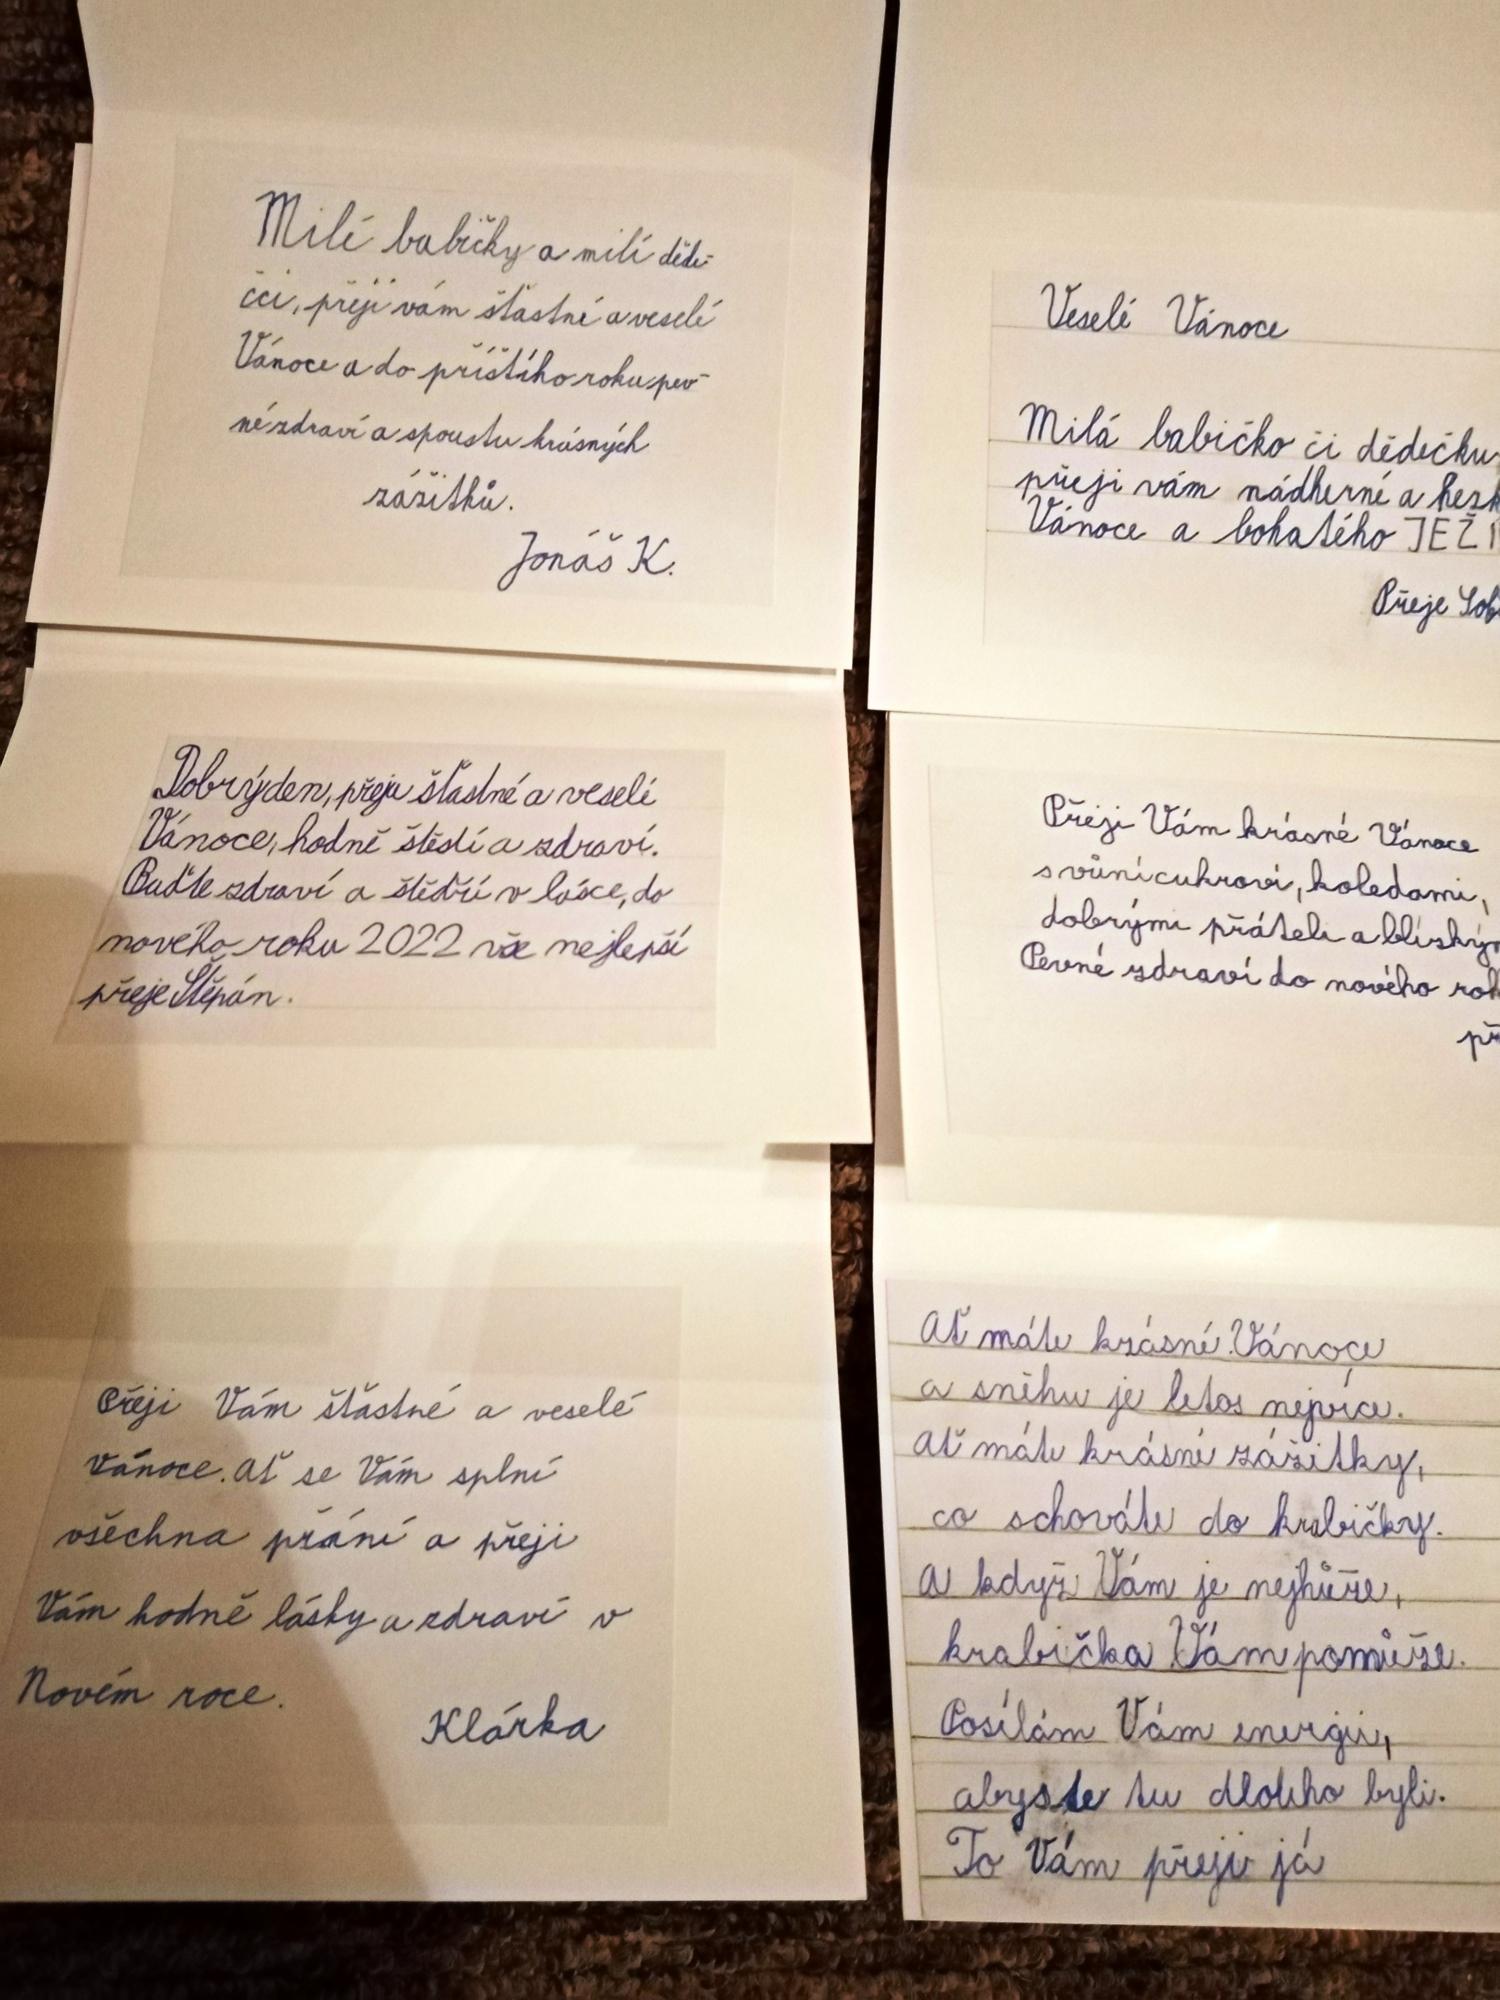 Milé babičky a milí děde-
čci, přeji vám šťastné a veselé
Vánoce a do příštího roku pev-
né zdraví a spoustu krásných
zážitků.
Jonáš K.
Veselé Vánoce
Milá babičko či dědečku
přeji vám nádherné a hezk
Vánoce a bohatého JEŽI
Přeje
Dobrý den, přeju šťastné a veselé
Vánoce, hodně štěstí a zdraví.
Buďte zdraví a štědří v lásce, do
nového roku 2022 vše nejlepší
přeje Štěpán.
Přeji Vám krásné Vánoce
s vůní cukroví, koledami,
dobrými přáteli a blízkým
Pevné zdraví do nového rok
př
Přeji Vám šťastné a veselé
Vánoce. Ať se Vám splní
všechna přání a přeji
Vám hodně lásky a zdraví v
Novém roce.
Klárka
Ať máte krásné Vánoce
a sněhu je letos nejvíce.
Ať máte krásné zážitky,
co schováte do krabičky.
A když Vám je nejhůře,
krabička Vám pomůže.
Posílám Vám energii,
abyste tu dlouho byli.
To Vám přeji já